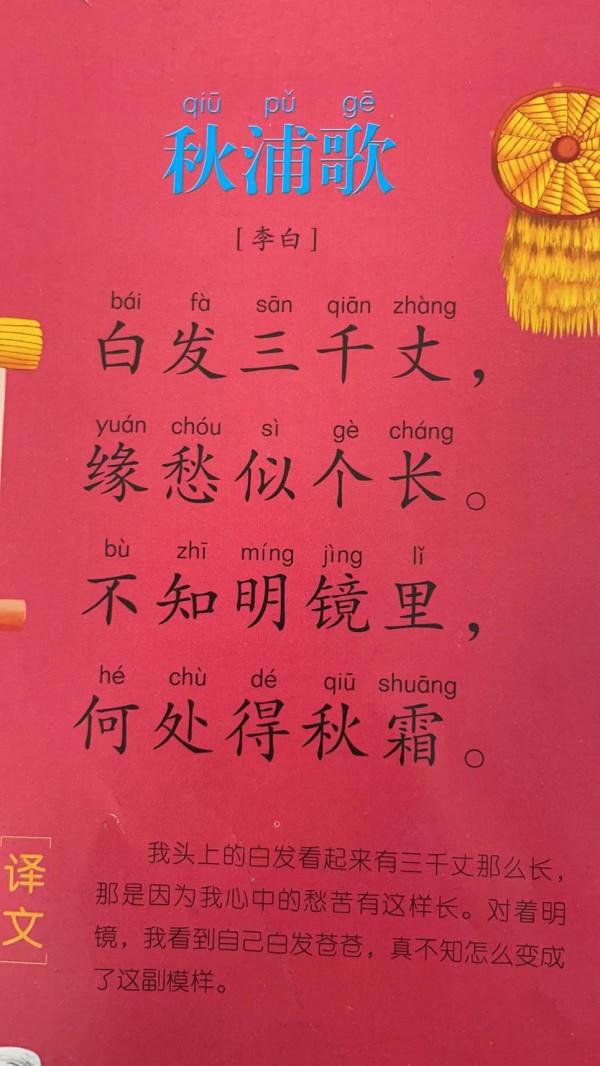 qiū pǔ gē
秋浦歌
[李白]
bái fà sān qiān zhàng
白发三千丈，
yuán chóu sì gè cháng
缘愁似个长。
bù zhī míng jìng lǐ
不知明镜里，
hé chù dé qiū shuāng
何处得秋霜。
译文
我头上的白发看起来有三千丈那么长，
那是因为我心中的愁苦有这样长。对着明
镜，我看到自己白发苍苍，真不知怎么变成
了这副模样。